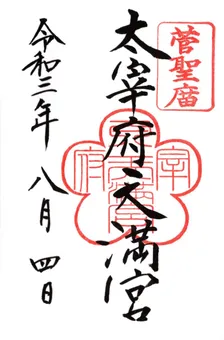 菅聖廟
太宰府天満宮
令和三年 八月 四日